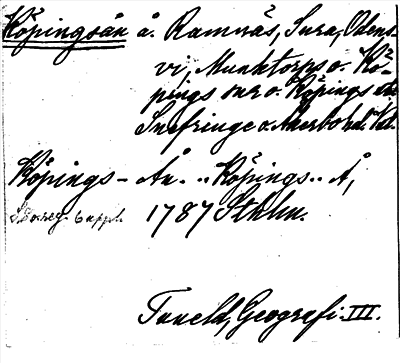 Köpingsån å. Ramnäs, Sura, Odens-
vi, Munktorps o. Kö-
pings snr o. Köpings stad
Snefringe o. Åkerbo hd. Vstm.
Köpings- Ån. "Köpings" Å,
1787 Sthlm.
Tuneld, Geografi. III.